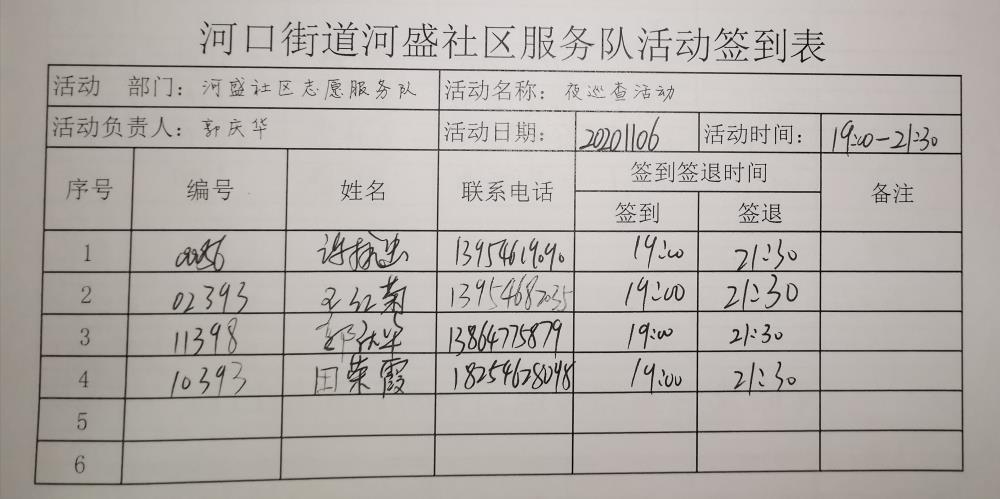 河口街道河盛社区服务队活动签到表
活动 部门：河盛社区志愿服务队 活动名称：夜巡查活动
活动负责人：郭庆华 活动日期： 20201106 活动时间： 19:00-21:30
序号 编号 姓名 联系电话 签到签退时间 备注
签到 签退
1 19:00 21:30
2 02393 王红菊 19:00 21:30
3 11398 郭庆华 13864775879 19:00 21:30
4 10393 田荣霞 18254628098 19:00 21:30
5
6